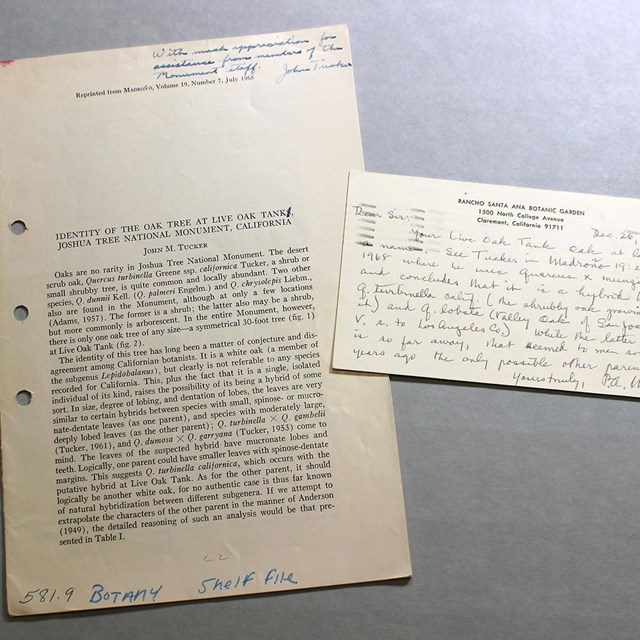 With much appreciation for
assistance from members of the
Monument staff. John Tucker
Reprinted from MADROÑO, Volume 19, Number 7, July 1968
IDENTITY OF THE OAK TREE AT LIVE OAK TANK,
JOSHUA TREE NATIONAL MONUMENT, CALIFORNIA
JOHN M. TUCKER
Oaks are no rarity in Joshua Tree National Monument. The desert
scrub oak, Quercus turbinella Greene ssp. californica Tucker, a shrub or
small shrubby tree, is quite common and locally abundant. Two other
species, Q. dunnii Kell. (Q. palmeri Engelm.) and Q. chrysolepis Liebm.,
also are found in the Monument, although at only a few locations
(Adams, 1957). The former is a shrub; the latter also may be a shrub,
but more commonly is arborescent. In the entire Monument, however,
there is only one oak tree of any size—a symmetrical 30-foot tree (fig. 1)
at Live Oak Tank (fig. 2).
The identity of this tree has long been a matter of conjecture and dis-
agreement among Californian botanists. It is a white oak (a member of
the subgenus Lepidobalanus), but clearly is not referable to any species
recorded for California. This, plus the fact that it is a single, isolated
individual of its kind, raises the possibility of its being a hybrid of some
sort. In size, degree of lobing, and dentation of lobes, the leaves are very
similar to certain hybrids between species with small, spinose- or mucro-
nate-dentate leaves (as one parent), and species with moderately large,
deeply lobed leaves (as the other parent); Q. turbinella × Q. gambelii
(Tucker, 1961), and Q. dumosa × Q. garryana (Tucker, 1953) come to
mind. The leaves of the suspected hybrid have mucronate lobes and
teeth. Logically, one parent could have smaller leaves with spinose-dentate
margins. This suggests Q. turbinella californica, which occurs with the
putative hybrid at Live Oak Tank. As for the other parent, it should
logically be another white oak, for no authentic case is thus far known
of natural hybridization between different subgenera. If we attempt to
extrapolate the characters of the other parent in the manner of Anderson
(1949), the detailed reasoning of such an analysis would be that pre-
sented in Table I.
c.2
581.9 BOTANY Shelf File
RANCHO SANTA ANA BOTANIC GARDEN
1500 North College Avenue
Claremont, California 91711
Dec 26
Dear Sir:
Your Live Oak Tank oak at l
a name. See Tucker in Madroño 19:
1968 where he uses Quercus x munz
and concludes that it is a hybrid
Q. turbinella calif. (the shrubby oak grow
it) and Q. lobata (Valley Oak of San Jo
V. s. to Los Angeles Co.) While the latter
is so far away, that seemed to me so
years ago the only possible other paren
Yours truly, P.A.